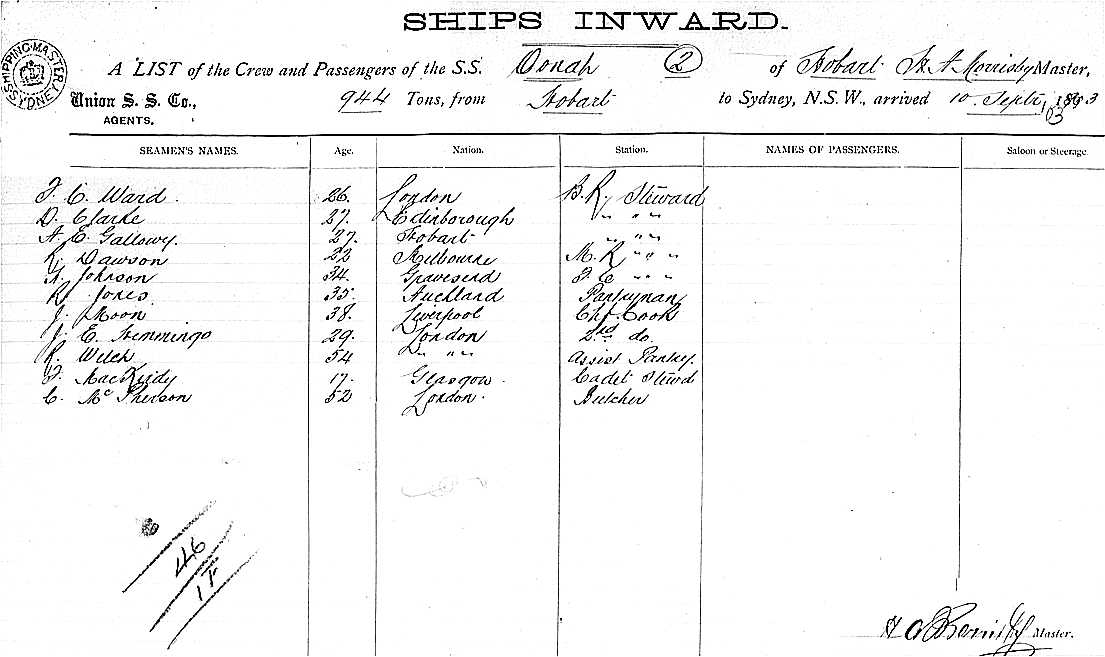 SHIPS INWARD.
SHIPPING MASTER SYDNEY
A LIST of the Crew and Passengers of the S.S. Oonah 2 of Hobart Master,
Union S. S. Co., 944 Tons, from Hobart to Sydney, N.S.W., arrived 10 Septr
AGENTS.
SEAMEN'S NAMES. Age. Nation. Station. NAMES OF PASSENGERS. Saloon or Steerage.
C. Ward. 26. London B. R. Steward
D. Clarke 27. Edinborough " " "
A. E. Gallowy. 27. Hobart " " "
R. Dawson 22 Melbourne M. R " " "
Johnson 34. Gravesend " " "
R. Jones 35. Auckland Pantryman
J. Moon 38. Liverpool Chf. Cook
J. E. Hemmings 29. London 2nd do.
R. Welch 54 " " " Assist Pantry.
17. Glasgow. Cadet Stewd
C. McPherson 52 London. Butcher
46
Master.